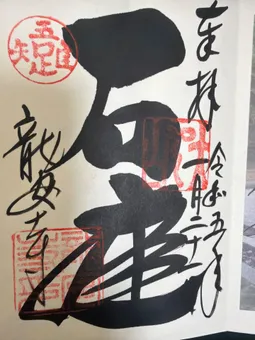 奉拝
令和五年
一月二十
石庭
龍安寺
吾唯足知